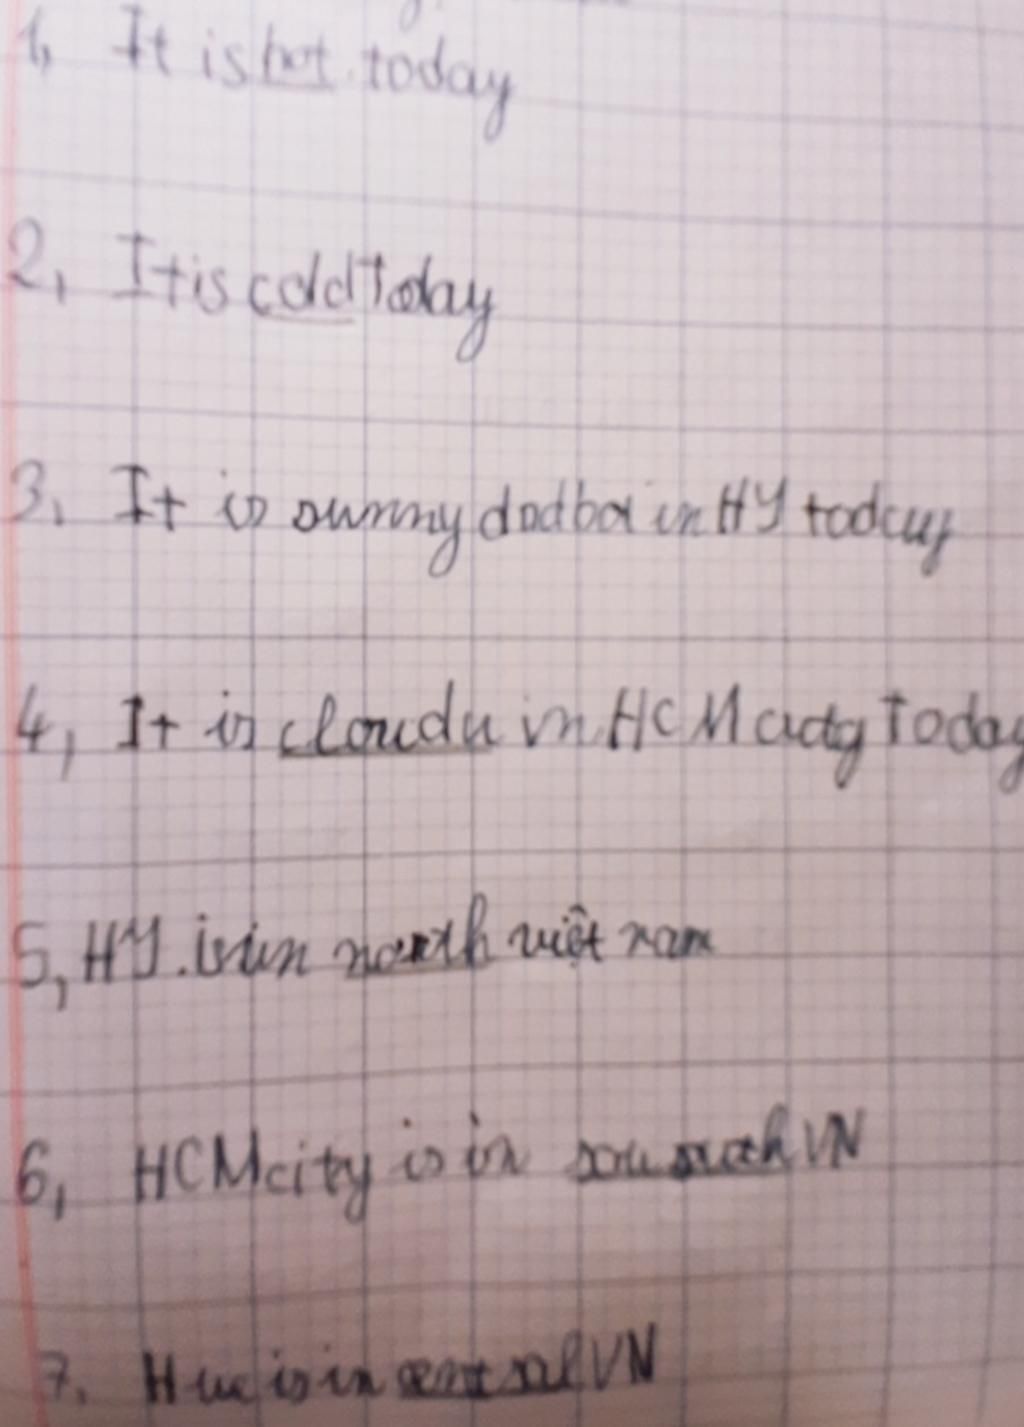 1, It is hot today
2, It is cold Today
3, It is sunny in HY today
4, It is cloudu in HCM Today
5, HY. is in north việt nam
6, HCM city is in VN
7. Hue is in VN